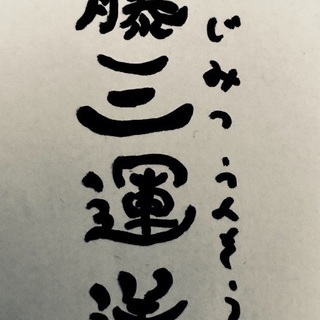 藤三運送
じみつ うんそう